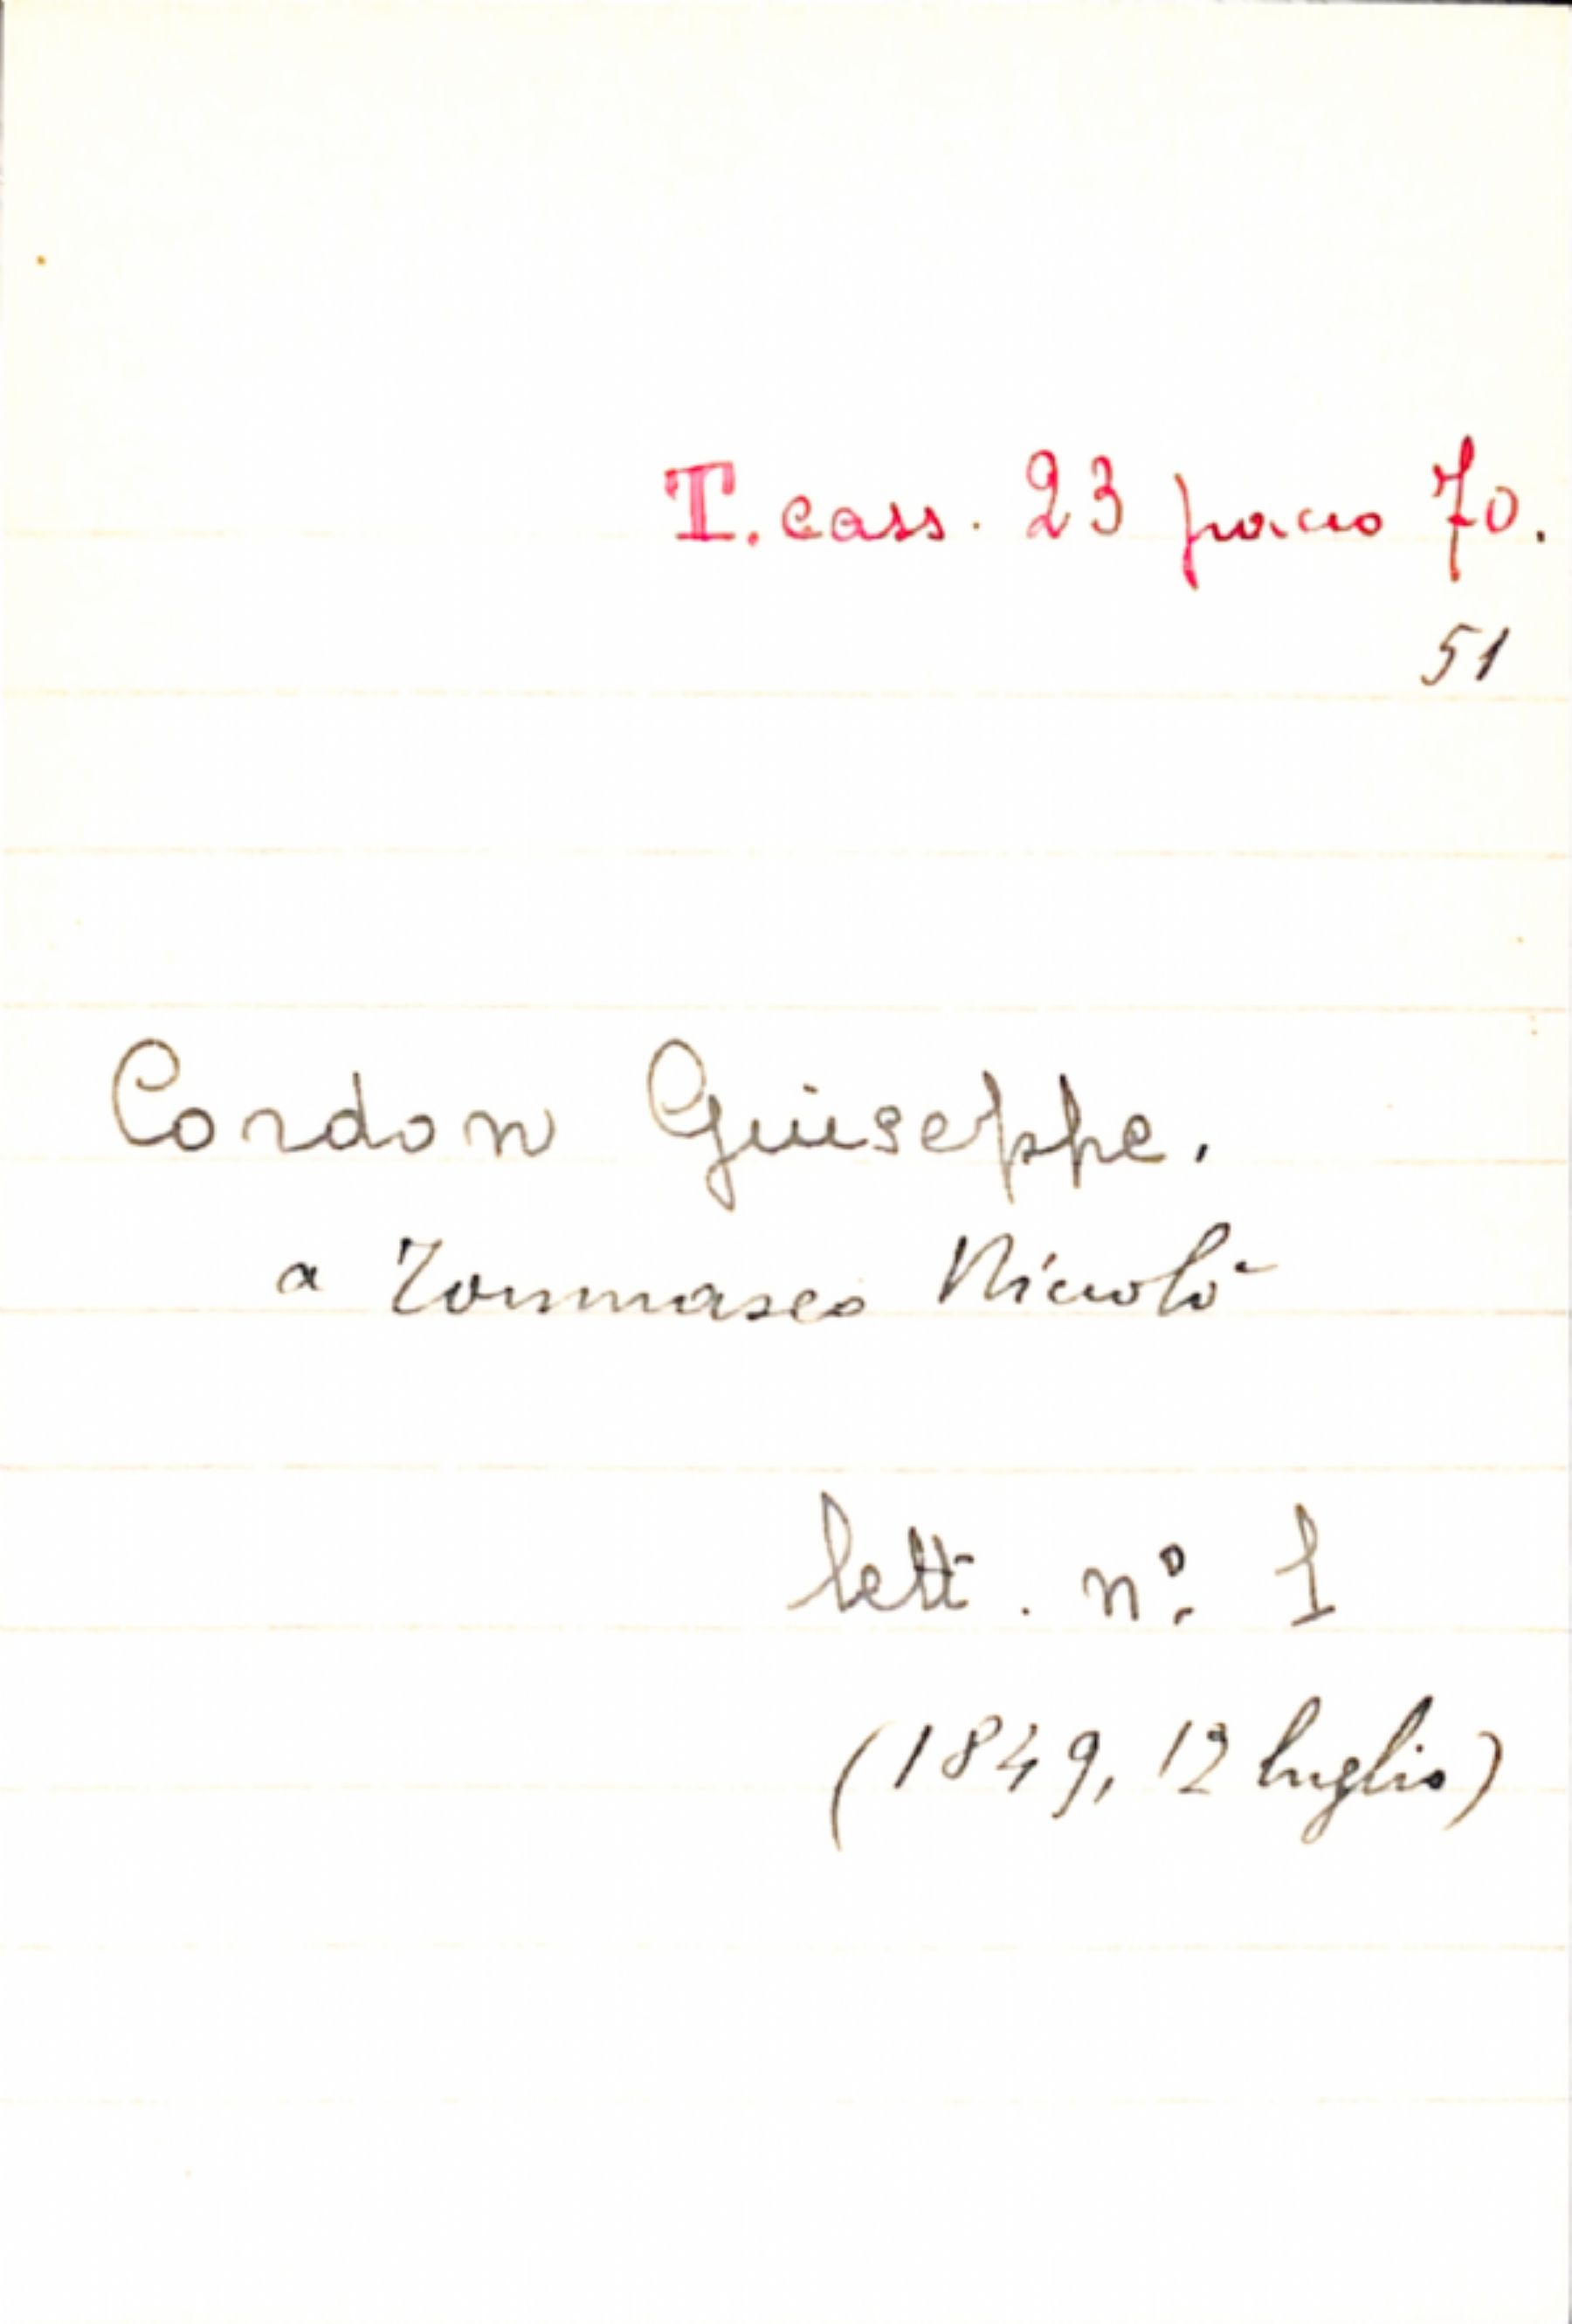 T. cass. 23 pacco 70.
51
Cordon Giuseppe.
a Tommaseo Niccolò
lett. nº 1
(1849, 12 luglio)